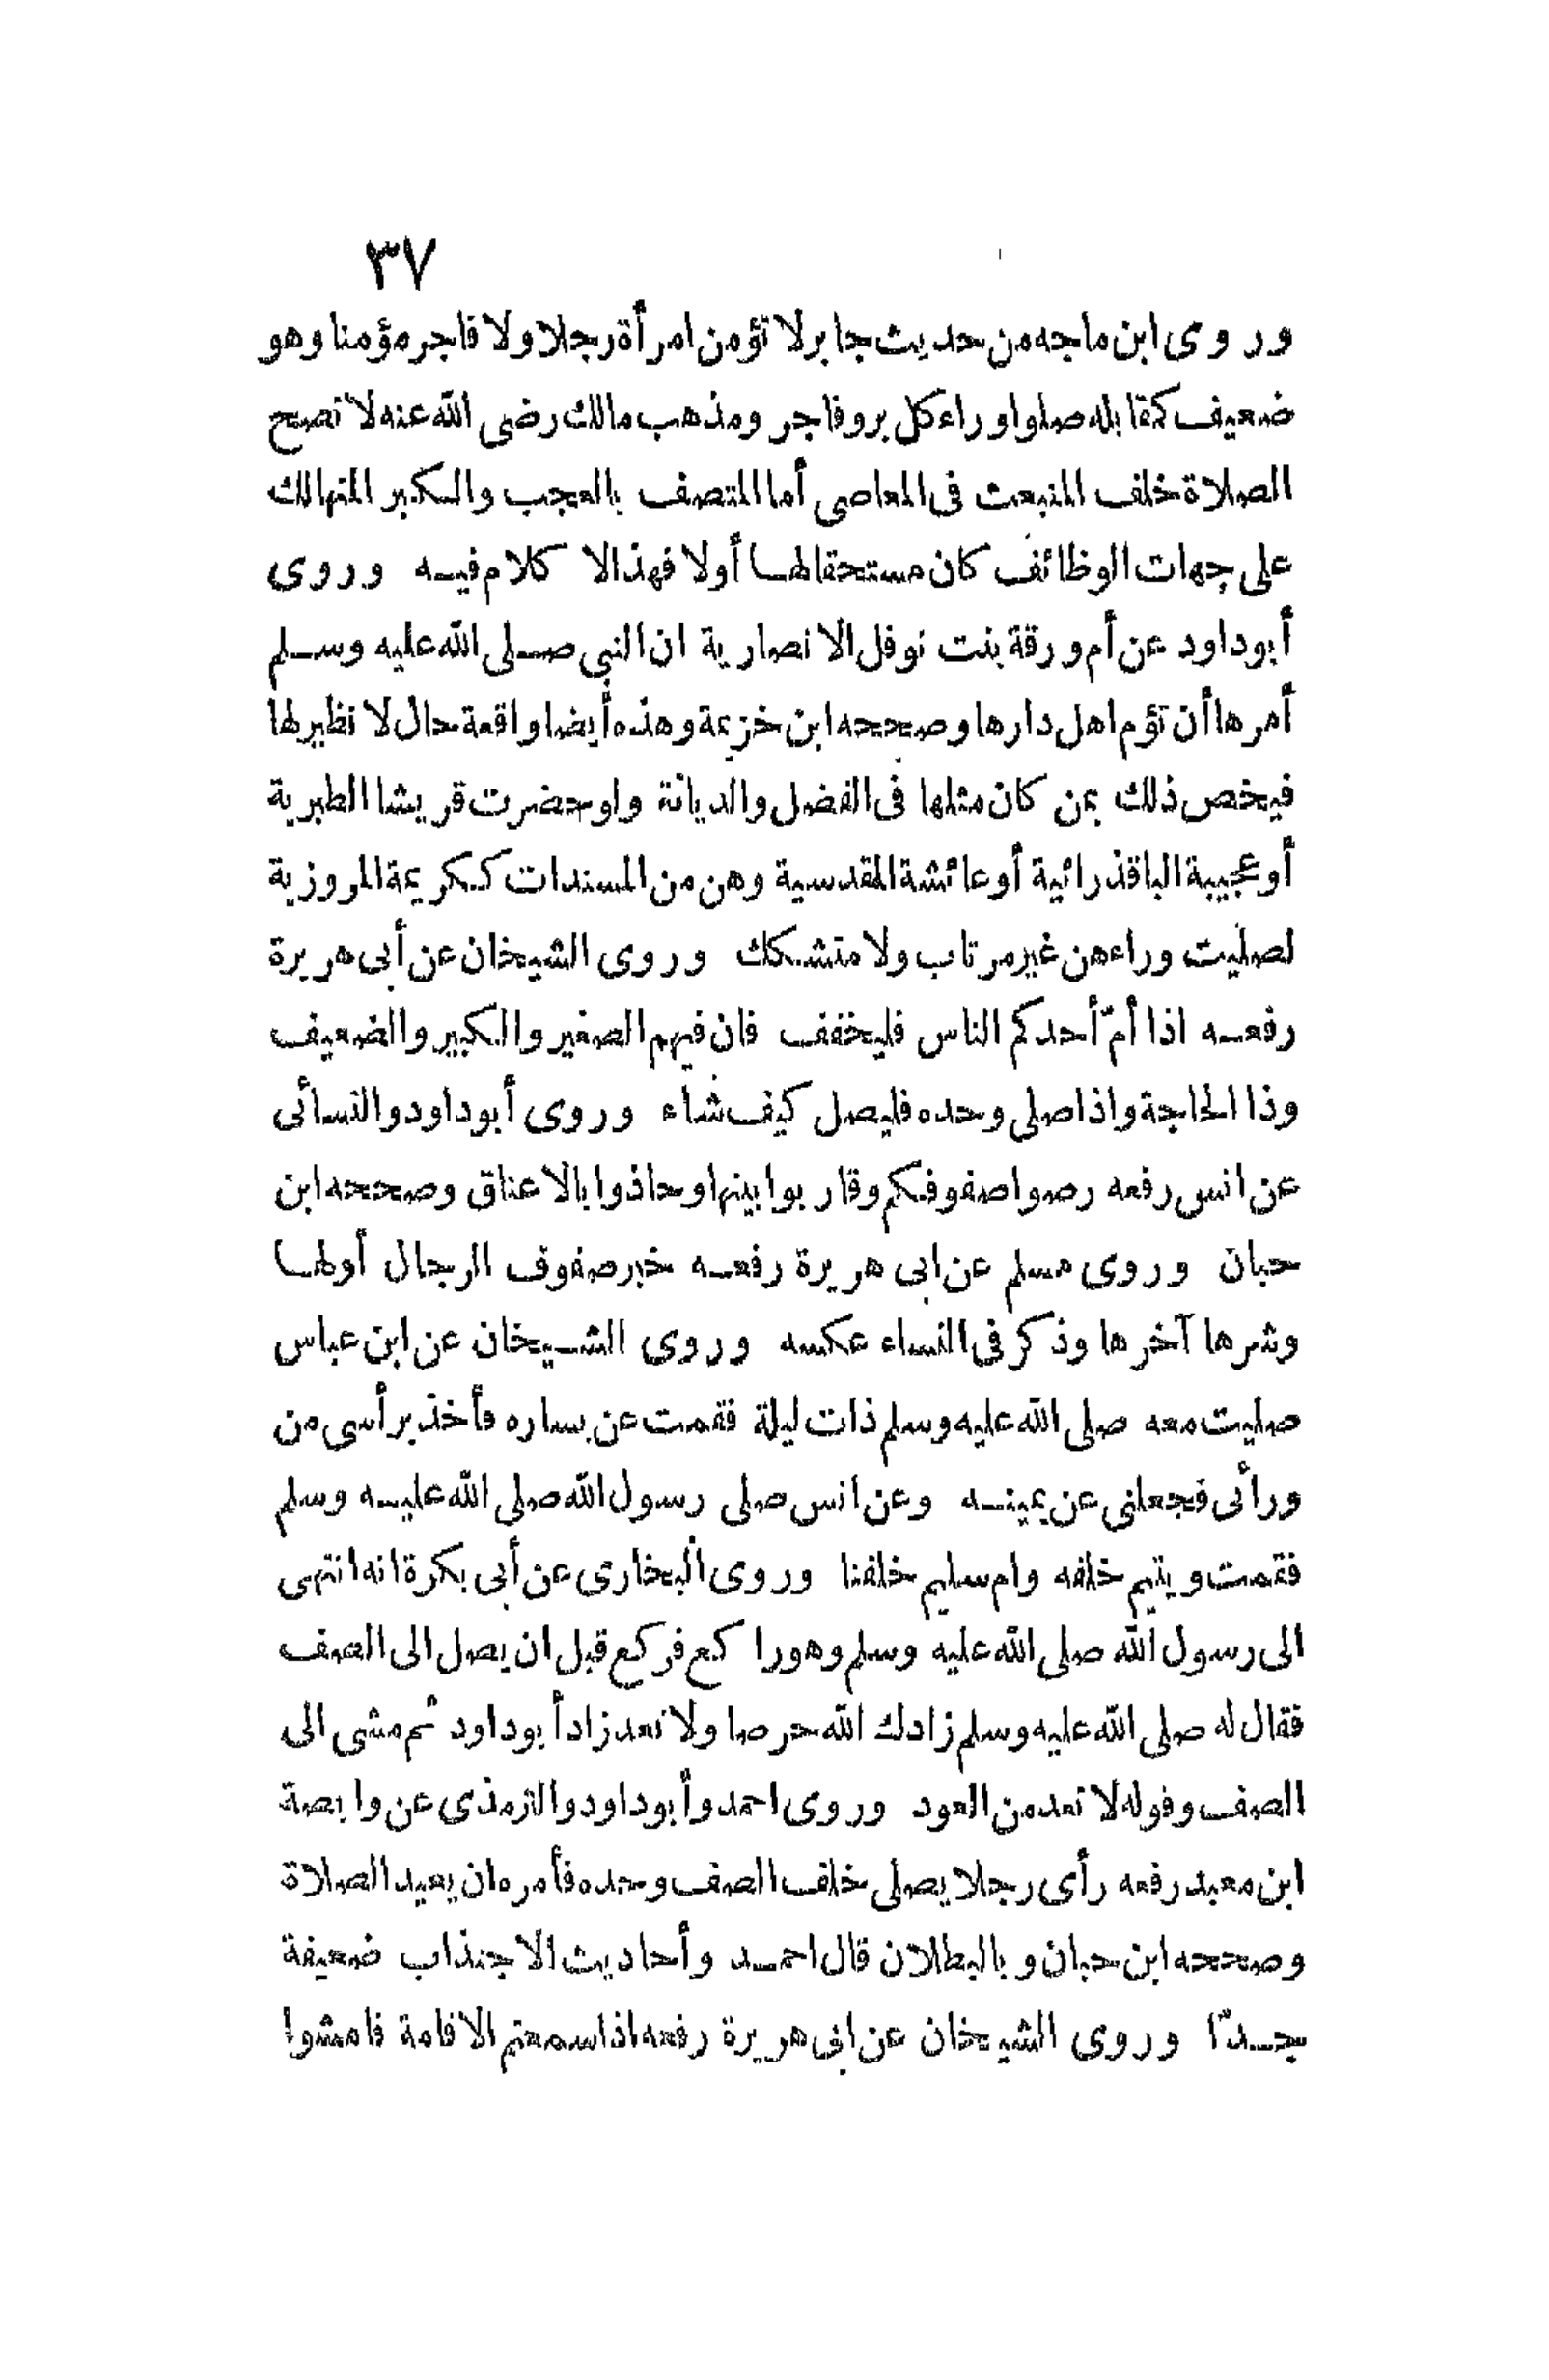 ٣٧
وروى ابن ماجه من حديث جابر لا تؤمن امرأة رجلا ولا فاجر مؤمنا وهو
ضعيف كمقابله صلوا وراء كل بر وفاجر ومذهب مالك رضى الله عنه لا تصح
الصلاة خلف المنبعث فى المعاصى أما المتصف بالعجب والكبر المتهالك
على جهات الوظائف كان مستحقا لها أولا فهذا لا كلام فيه وروى
أبو داود عن أم ورقة بنت نوفل الانصارية ان النبى صلى الله عليه وسلم
أمرها أن تؤم اهل دارها وصححه ابن خزيمة وهذه أيضا واقعة حال لا نظير لها
فيخص ذلك بمن كان مثلها فى الفضل والديانة ولو حضرت قريشا الطبرية
أو عجيبة الباقذرائية أو عائشة المقدسية وهن من المسندات ككريمة المروزية
لصليت وراءهن غير مرتاب ولا متشكك وروى الشيخان عن أبى هريرة
رفعه اذا أمّ أحدكم الناس فليخفف فان فيهم الصغير والكبير والضعيف
وذا الحاجة واذا صلى وحده فليصل كيف شاء وروى أبو داود والنسائى
عن انس رفعه رصوا صفوفكم وقاربوا بينها وحاذوا بالاعناق وصححه ابن
حبان وروى مسلم عن ابى هريرة رفعه خير صفوف الرجال أولها
وشرها آخرها وذكر فى النساء عكسه وروى الشيخان عن ابن عباس
صليت معه صلى الله عليه وسلم ذات ليلة فقمت عن يساره فأخذ برأسى من
ورأئى فجعلنى عن يمينه وعن انس صلى رسول الله صلى الله عليه وسلم
فقمت ويتيم خلفه وام سليم خلفنا وروى البخارى عن أبى بكرة انه انتهى
الى رسول الله صلى الله عليه وسلم وهو راكع فركع قبل ان يصل الى الصف
فقال له صلى الله عليه وسلم زادك الله حرصا ولا تعد زاد أبو داود ثم مشى الى
الصف وقوله لا تعد من العود وروى احمد وأبو داود والترمذى عن وابصة
ابن معبد رفعه رأى رجلا يصلى خلف الصف وحده فأمره ان يعيد الصلاة
وصححه ابن حبان وبالبطلان قال احمد وأحاديث الاجتذاب ضعيفة
جدّا وروى الشيخان عن ابى هريرة رفعه اذا سمعتم الاقامة فامشوا